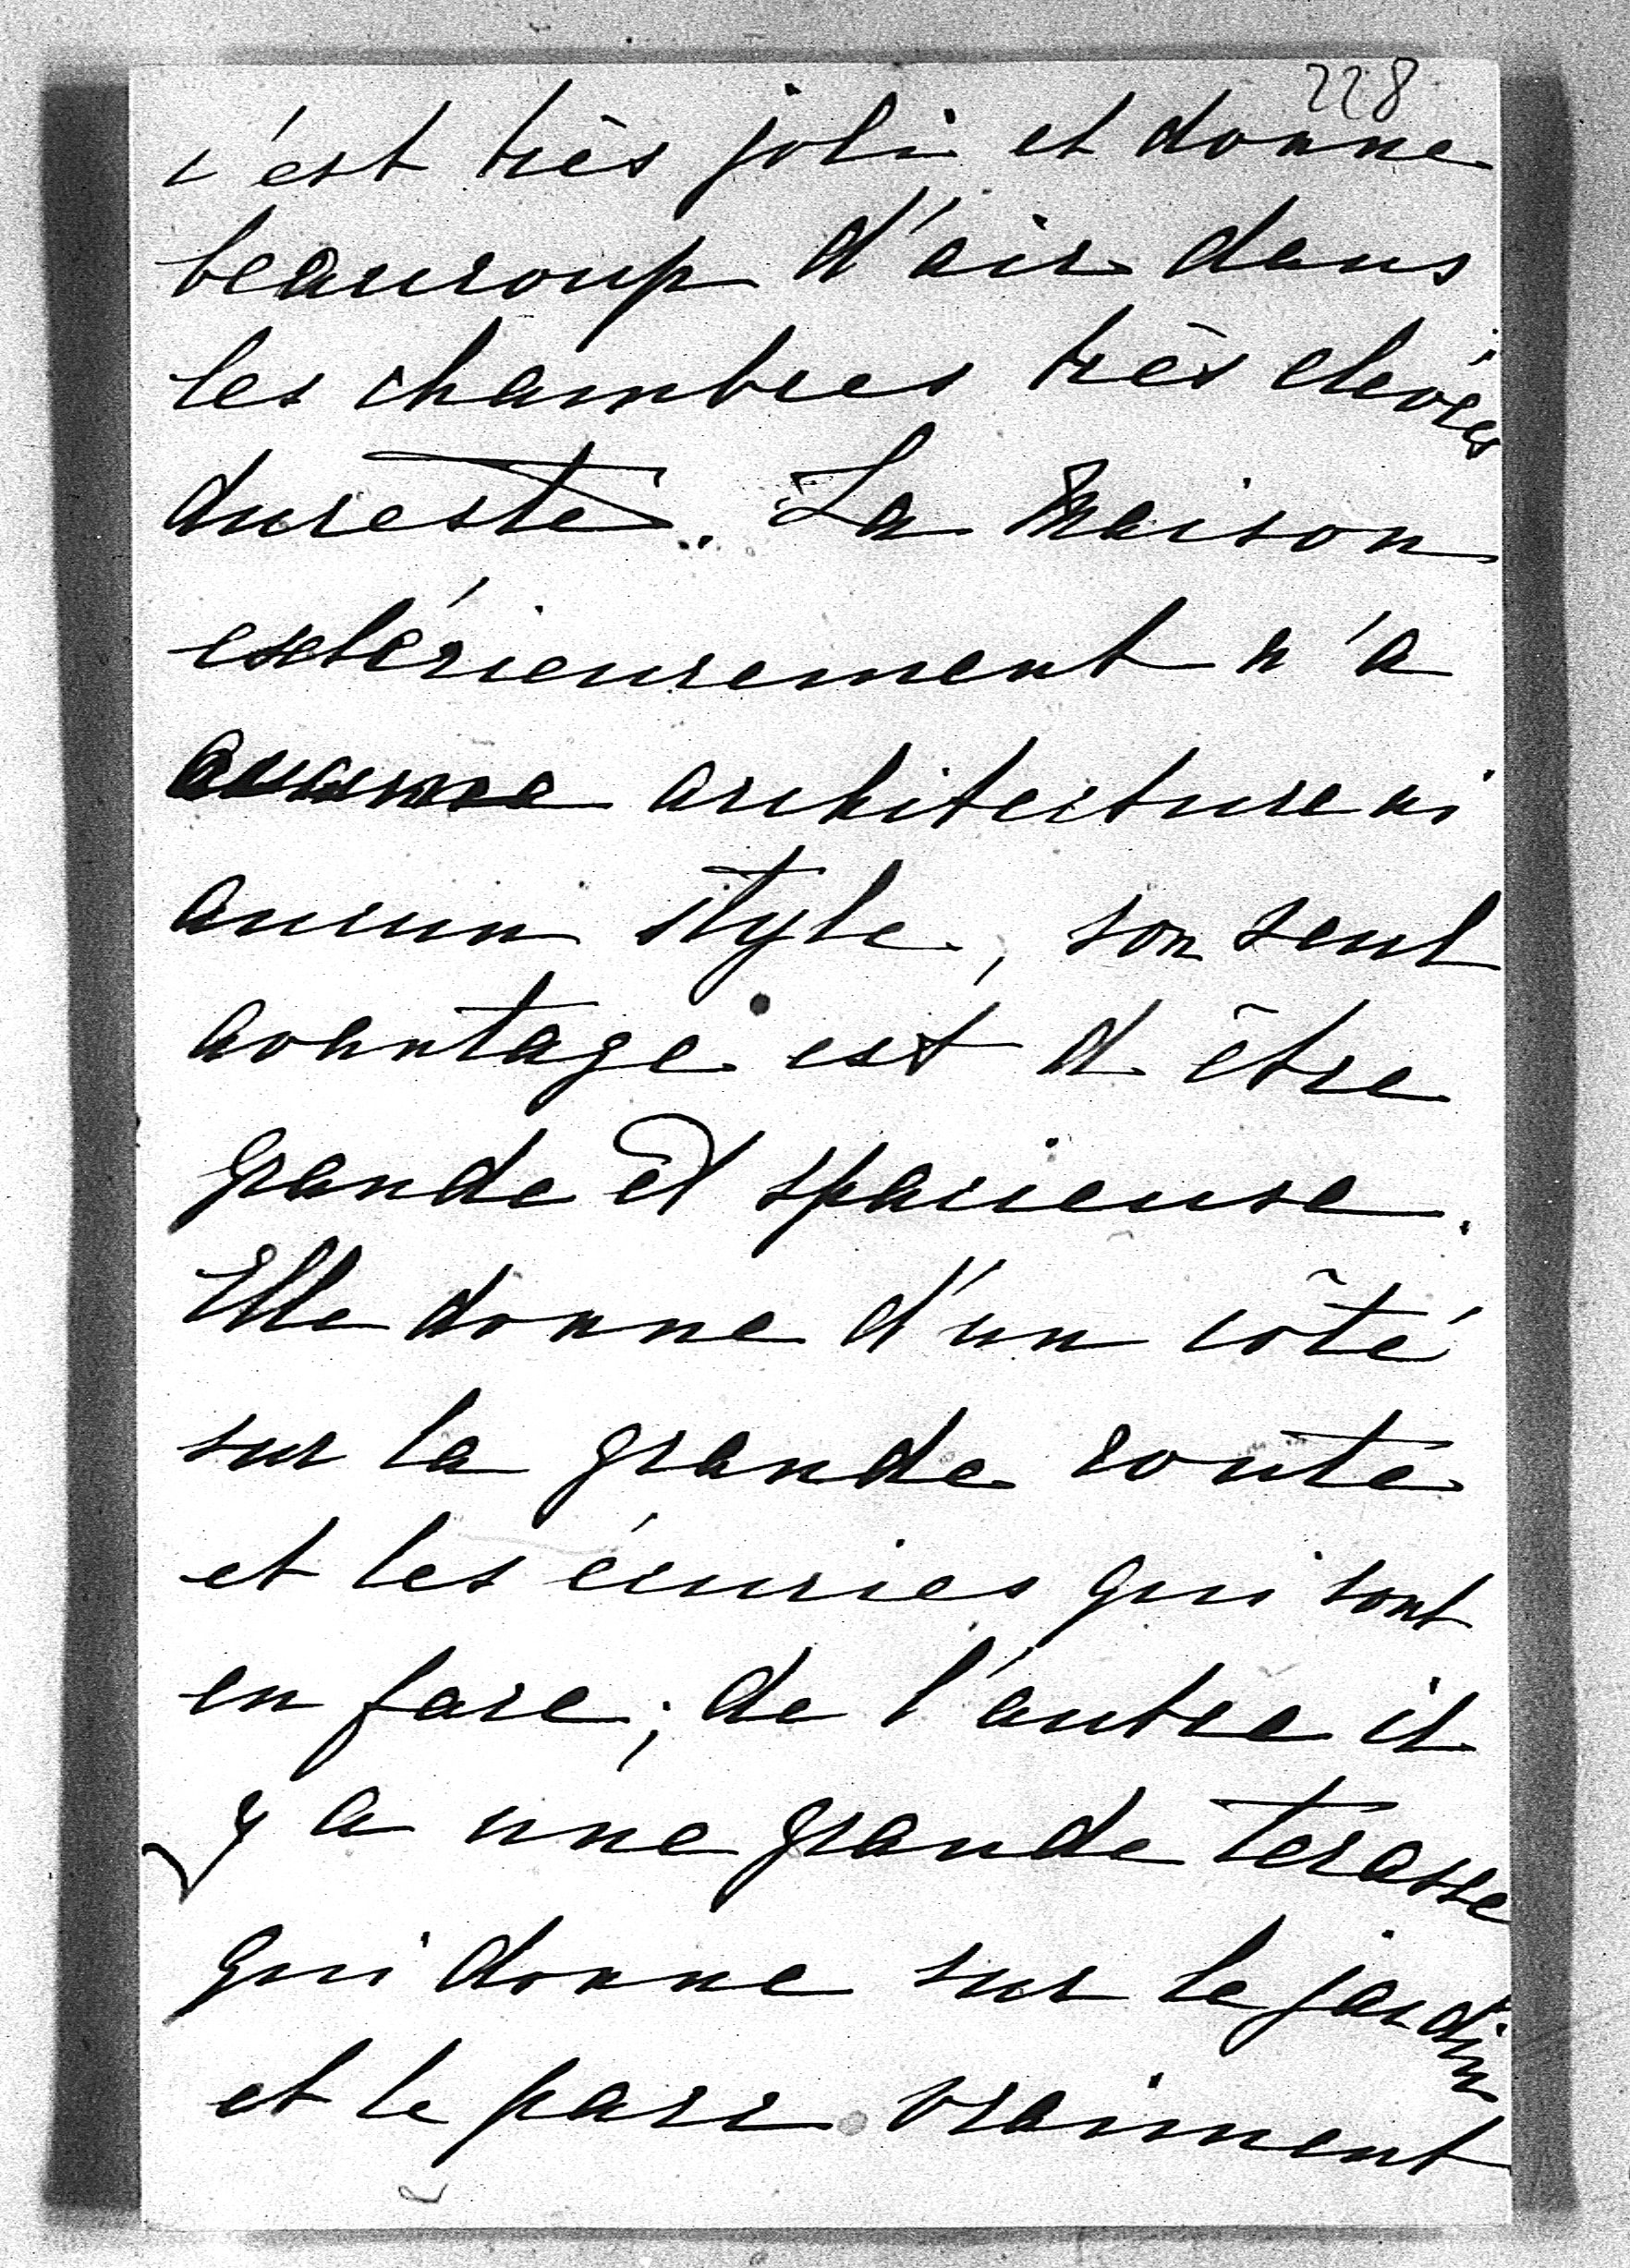 228
c'est très joli et donne
beaucoup d'air dans
les chambres très elevées
dureste. La maison
extérieurement n'a
aucune architecture ni
aucun style, son seul
avantage est d'être
grande et spacieuse.
Elle donne d'un côté
sur la grande route
et les écuries qui sont
en face; de l'autre il
y a une grande terasse
qui donne sur le jardin
et le parc vraiment